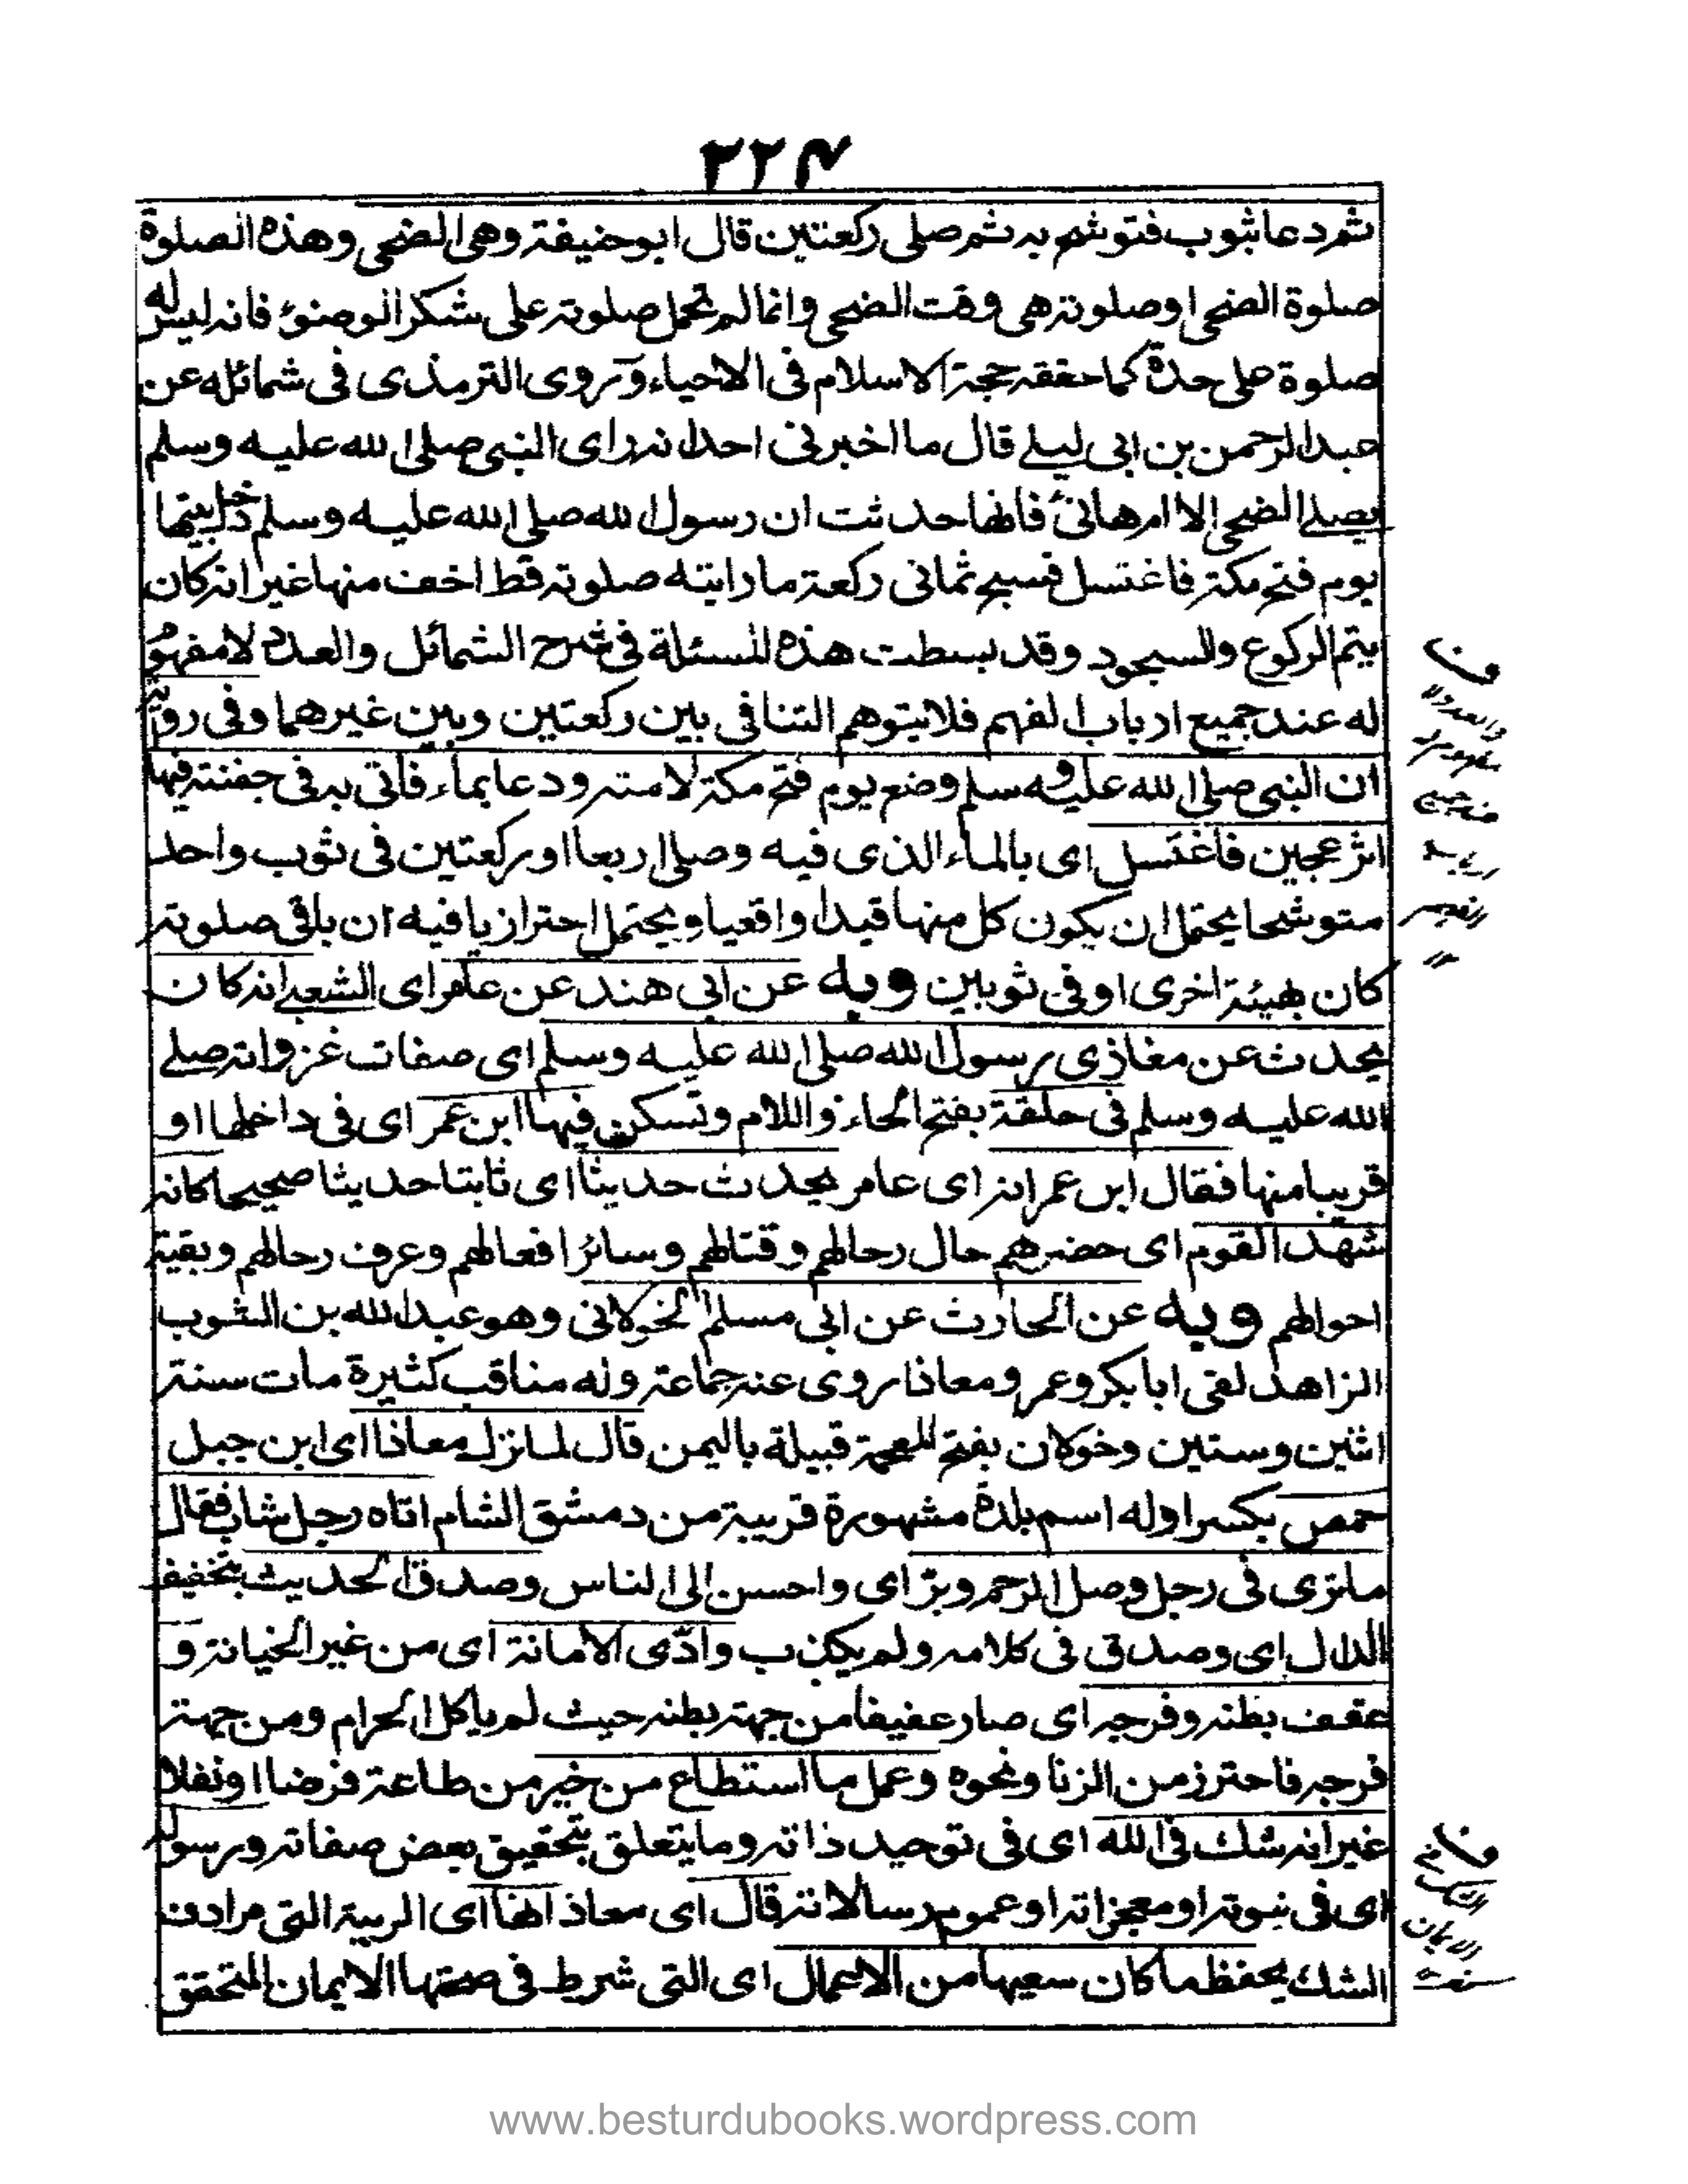 ٢٢٤
ثم دعا بثوب فتوشح به ثم صلى ركعتين قال ابوحنيفة وهى الضحى وهذه الصلوة
صلوة الضحى او صلوته هى وقت الضحى وانما لم تحمل صلوته على شكر الوضوء فانه ليس له
صلوة على حدة كما حققه حجة الاسلام فى الاحياء وروى الترمذى فى شمائله عن
عبد الرحمن بن ابى ليلے قال ما اخبرنى احد انه راى النبى صلى الله عليه وسلم
يصلے الضحى الا ام هانئ فانها حدثت ان رسول الله صلى الله عليه وسلم دخل بيتها
يوم فتح مكة فاغتسل فسبح ثمانى ركعة ما رايته صلوته قط اخف منها غير انه كان
يتم الركوع والسجود وقد بسطت هذه المسئلة فى شرح الشمائل والعدد لا مفهوم
له عند جميع ارباب الفهم فلا يتوهم التنافى بين ركعتين وبين غيرهما وفى رواية
ان النبى صلى الله عليه وسلم وضع يوم فتح مكة لامته ودعا بماء فاتى به فى جفنة فيها
اثر عجين فاغتسل اى بالماء الذى فيه وصلى اربعا او ركعتين فى ثوب واحد
متوشحا يحتمل ان يكون كل منها قيدا واقعيا ويحتمل احترازيا فيه ان باقى صلوته
كان بهيئة اخرى او فى ثوبين وبه عن ابى هند عن عامر اى الشعبے انه كان
يحدث عن مغازى رسول الله صلى الله عليه وسلم اى صفات غزواته صلے
الله عليه وسلم فى حلقة بفتح الحاء واللام وتسكن فيها ابن عمر اى فى داخلها او
قريبا منها فقال ابن عمر انه اى عامر يحدث حديثا اى ثابتا حديثا صحيحا كانه
شهد القوم اى حضرهم حال رحالهم وقتالهم وسائر افعالهم وعرف رحالهم وبقية
احوالهم وبه عن الحارث عن ابى مسلم الخولانى وهو عبد الله بن الثوب
الزاهد لقى ابا بكر وعمر ومعاذا روى عنه جماعة وله مناقب كثيرة مات سنة
اثنين وستين وخولان بفتح المعجمة قبيلة باليمن قال لما نزل معاذا اى ابن جبل
حمص بكسر اوله اسم بلدة مشهورة قريبة من دمشق الشام اتاه رجل شاب فقال
ما ترى فى رجل وصل الرحم وبر اى واحسن الى الناس وصدق الحديث بتخفيف
الدال اى وصدق فى كلامه ولم يكذب وادّى الامانة اى من غير الخيانة و
عفف بطنه وفرجه اى صار عفيفا من جهة بطنه حيث لم ياكل الحرام ومن جهة
فرجه فاحترز من الزنا ونحوه وعمل ما استطاع من خير من طاعة فرضا او نفلا
غير انه شك فى الله اى فى توحيد ذاته وما يتعلق بتحقيق بعض صفاته ورسوله
اى فى نبوته او معجزاته او عموم رسالاته قال اى معاذ انها اى الريبة التى مرادف
الشك يحفظ ما كان سعيها من الاعمال اى التى شرط فى صحتها الايمان المتحقق
www.besturdubooks.wordpress.com